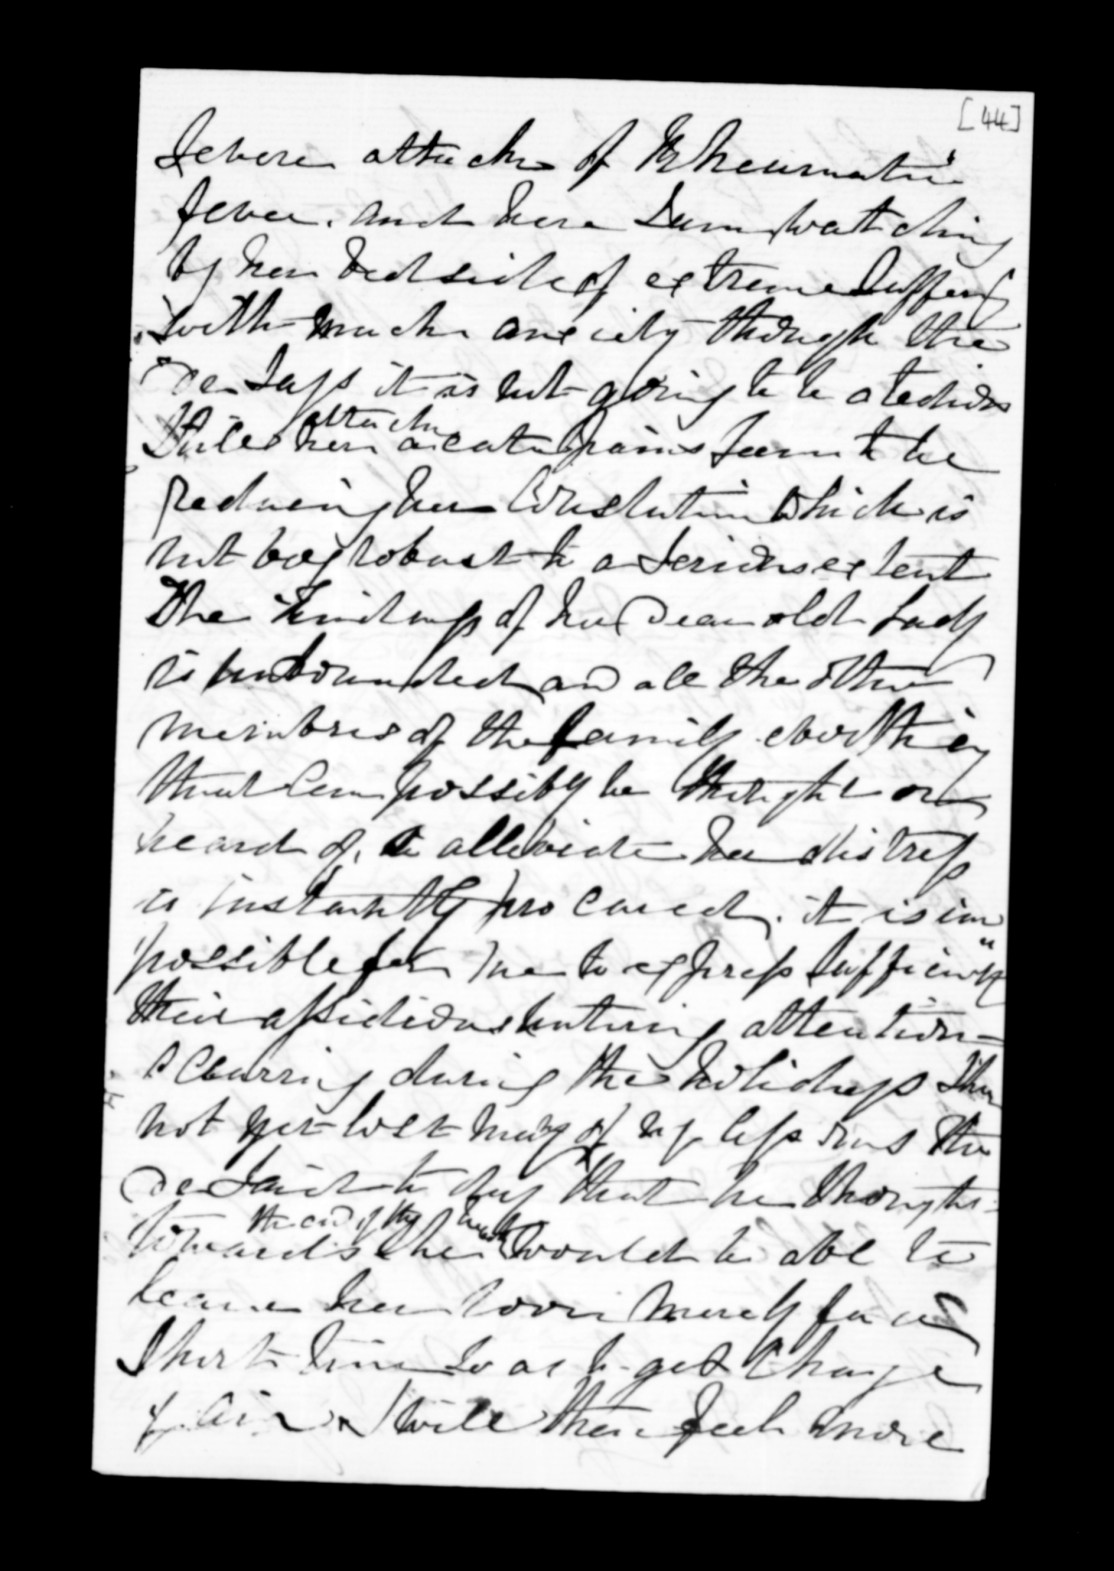 [44]
Severe attacks of Rheumatic
fever. and here I am watching
by her bedside of extreme suffering
with much anxiety though the
Dr says it is not going to be a tedious
attack
Still her acute pains seem to be
reducing her Constitution which is
not very robust to a serious extent
The kindness of her dear old Lady
is unbounded and all the other
members of the family. everything
that can possibly be thought or
heard of, to alleviate her distress
is instantly procured. it is im
possible for me to express sufficiently
their assiduous untiring attention
occurring during the holidays I have
not yet lost many of my lessons the
Dr said to day that he thought
the end of the week
towards she would be able to
leave her room merely for a
short time so as to get change
of air. I will then feel more